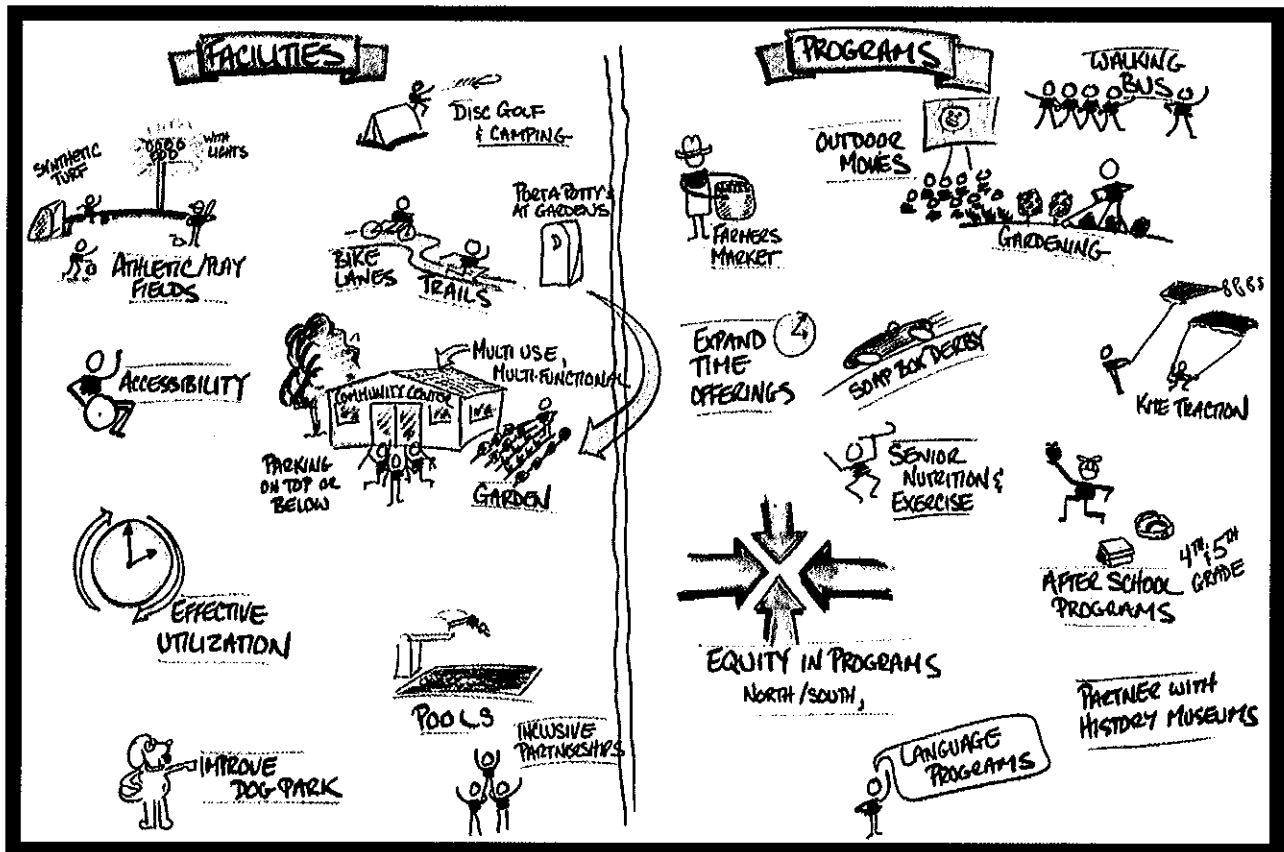 FACILITIES
DISC GOLF
& CAMPING
SYNTHETIC
TURF
WITH
LIGHTS
ATHLETIC/PLAY
FIELDS
BIKE
LANES
TRAILS
PORTA POTTY'S
AT GARDENS
ACCESSIBILITY
MULTI USE,
MULTI-FUNCTIONAL
COMMUNITY CENTER
PARKING
ON TOP OR
BELOW
GARDEN
EFFECTIVE
UTILIZATION
POOLS
IMPROVE
DOG PARK
INCLUSIVE
PARTNERSHIPS
PROGRAMS
WALKING
BUS
OUTDOOR
MOVIES
FARMERS
MARKET
GARDENING
EXPAND
TIME
OFFERINGS
SOAP BOX DERBY
KITE TRACTION
SENIOR
NUTRITION &
EXERCISE
AFTER SCHOOL
PROGRAMS
4TH & 5TH
GRADE
EQUITY IN PROGRAMS
NORTH/SOUTH,
PARTNER WITH
HISTORY MUSEUMS
LANGUAGE
PROGRAMS